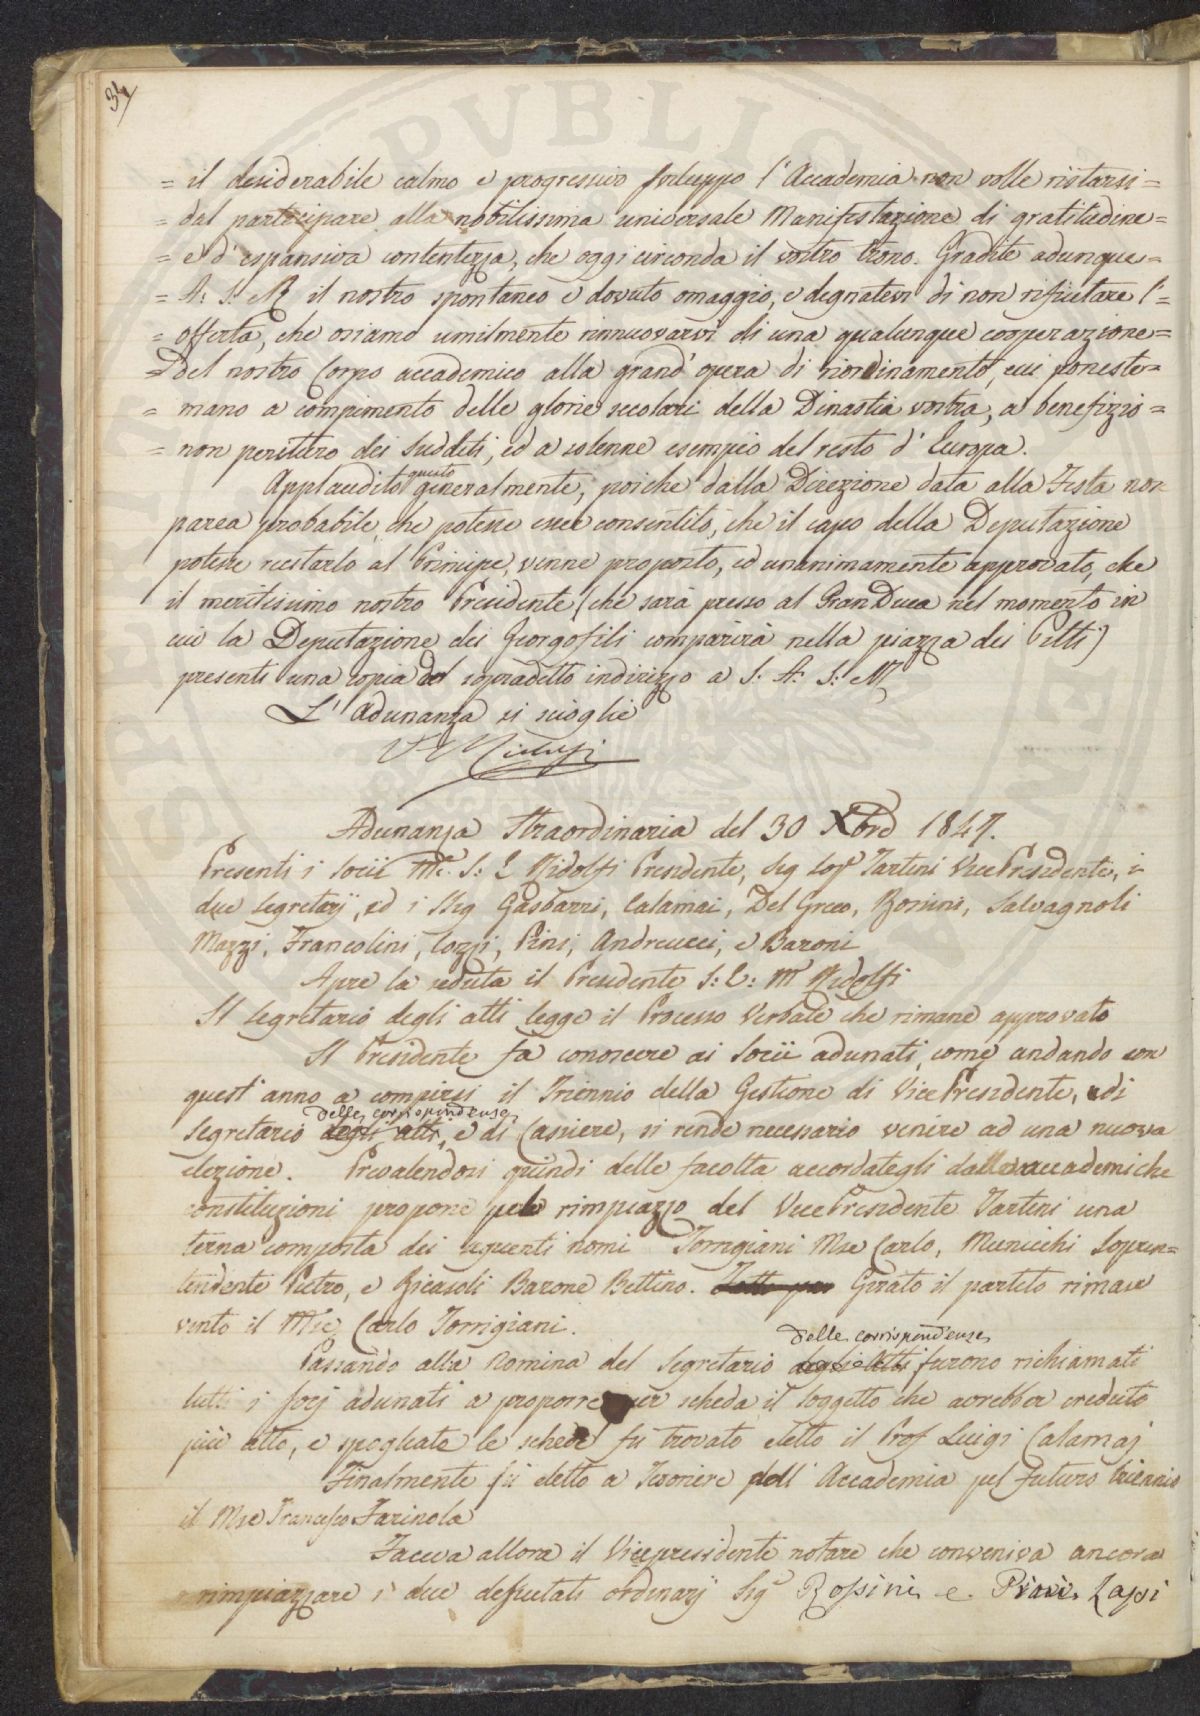 34
= il desiderabile calmo e progressivo sviluppo l'Accademia non volle ristarsi =
= dal participare alla nobilissima universale Manifestazione di gratitudine =
= e d'espansiva contentezza, che oggi circonda il vostro trono. Gradite adunque =
= A: I: e R il nostro spontaneo e dovuto omaggio, e degnatevi di non rifiutare l' =
= offerta, che osiamo umilmente rinnuovarvi di una qualunque cooperazione =
= del nostro Corpo accademico alla grand'opera di riordinamento, cui poneste =
= mano a compimento delle glorie secolari della Dinastia vostra, a benefizio =
= non perituro dei sudditi, ed a solenne esempio del resto d'Europa.
Applaudito questo generalmente, poiche dalla Direzione data alla Festa non
parea probabile, che potesse esser consentito, che il capo della Deputazione
potesse recitarlo al Principe, venne proposto, ed unanimamente approvato, che
il meritissimo nostro Presidente (che sarà presso al GranDuca nel momento in
cui la Deputazione dei Georgofili comparirà nella piazza dei Pitti)
presenti una copia del sopradetto indirizzo a S: A: I: e R
L'Adunanza si scioglie
Adunanza Straordinaria del 30 Xbre 1847.
Presenti i Socii Me. S: E Ridolfi Presidente, Sig Conf Tartini VicePresidente, i
due Segretarj, ed i SSig Gasbarri, Calamai, Del Greco, Bonini, Salvagnoli
Mazzi, Francolini, Cozzi, Pini, Andreucci, e Baroni
Apre la seduta il Presidente S: E: Me Ridolfi
Il Segretario degli atti legge il Processo Verbale che rimane approvato
Il Presidente fa conoscere ai Socii adunati, come andando con
quest'anno a compirsi il Triennio della Gestione di VicePresidente, di
Segretario degli atti, delle corrispondenze e di Cassiere, si rende necessario venire ad una nuova
elezione. Prevalendosi quindi delle facolta accordategli dalle accademiche
constituzioni propone pel rimpiazzo del VicePresidente Tartini una
terna composta dei seguenti nomi Torrigiani Mse Carlo, Municchi Soprin=
tendente Pietro, e Ricasoli Barone Bettino. Girato il partito rimase
vinto il Mse Carlo Torrigiani.
Passando alla Nomina del Segretario degli Atti delle corrispondenze furono richiamati
tutti i Socj adunati a proporre per scheda il soggetto che avrebber creduto
più atto, e spogliate le schede fu trovato eletto il Prof Luigi Calamaj
Finalmente fu eletto a Tesoriere dell'Accademia pel futuro triennio
il Mse Francesco Farinola
Faceva allora il Vicepresidente notare che conveniva ancora
rimpiazzare i due deputati ordinarj Sigi Rossini e Piovi Zappi